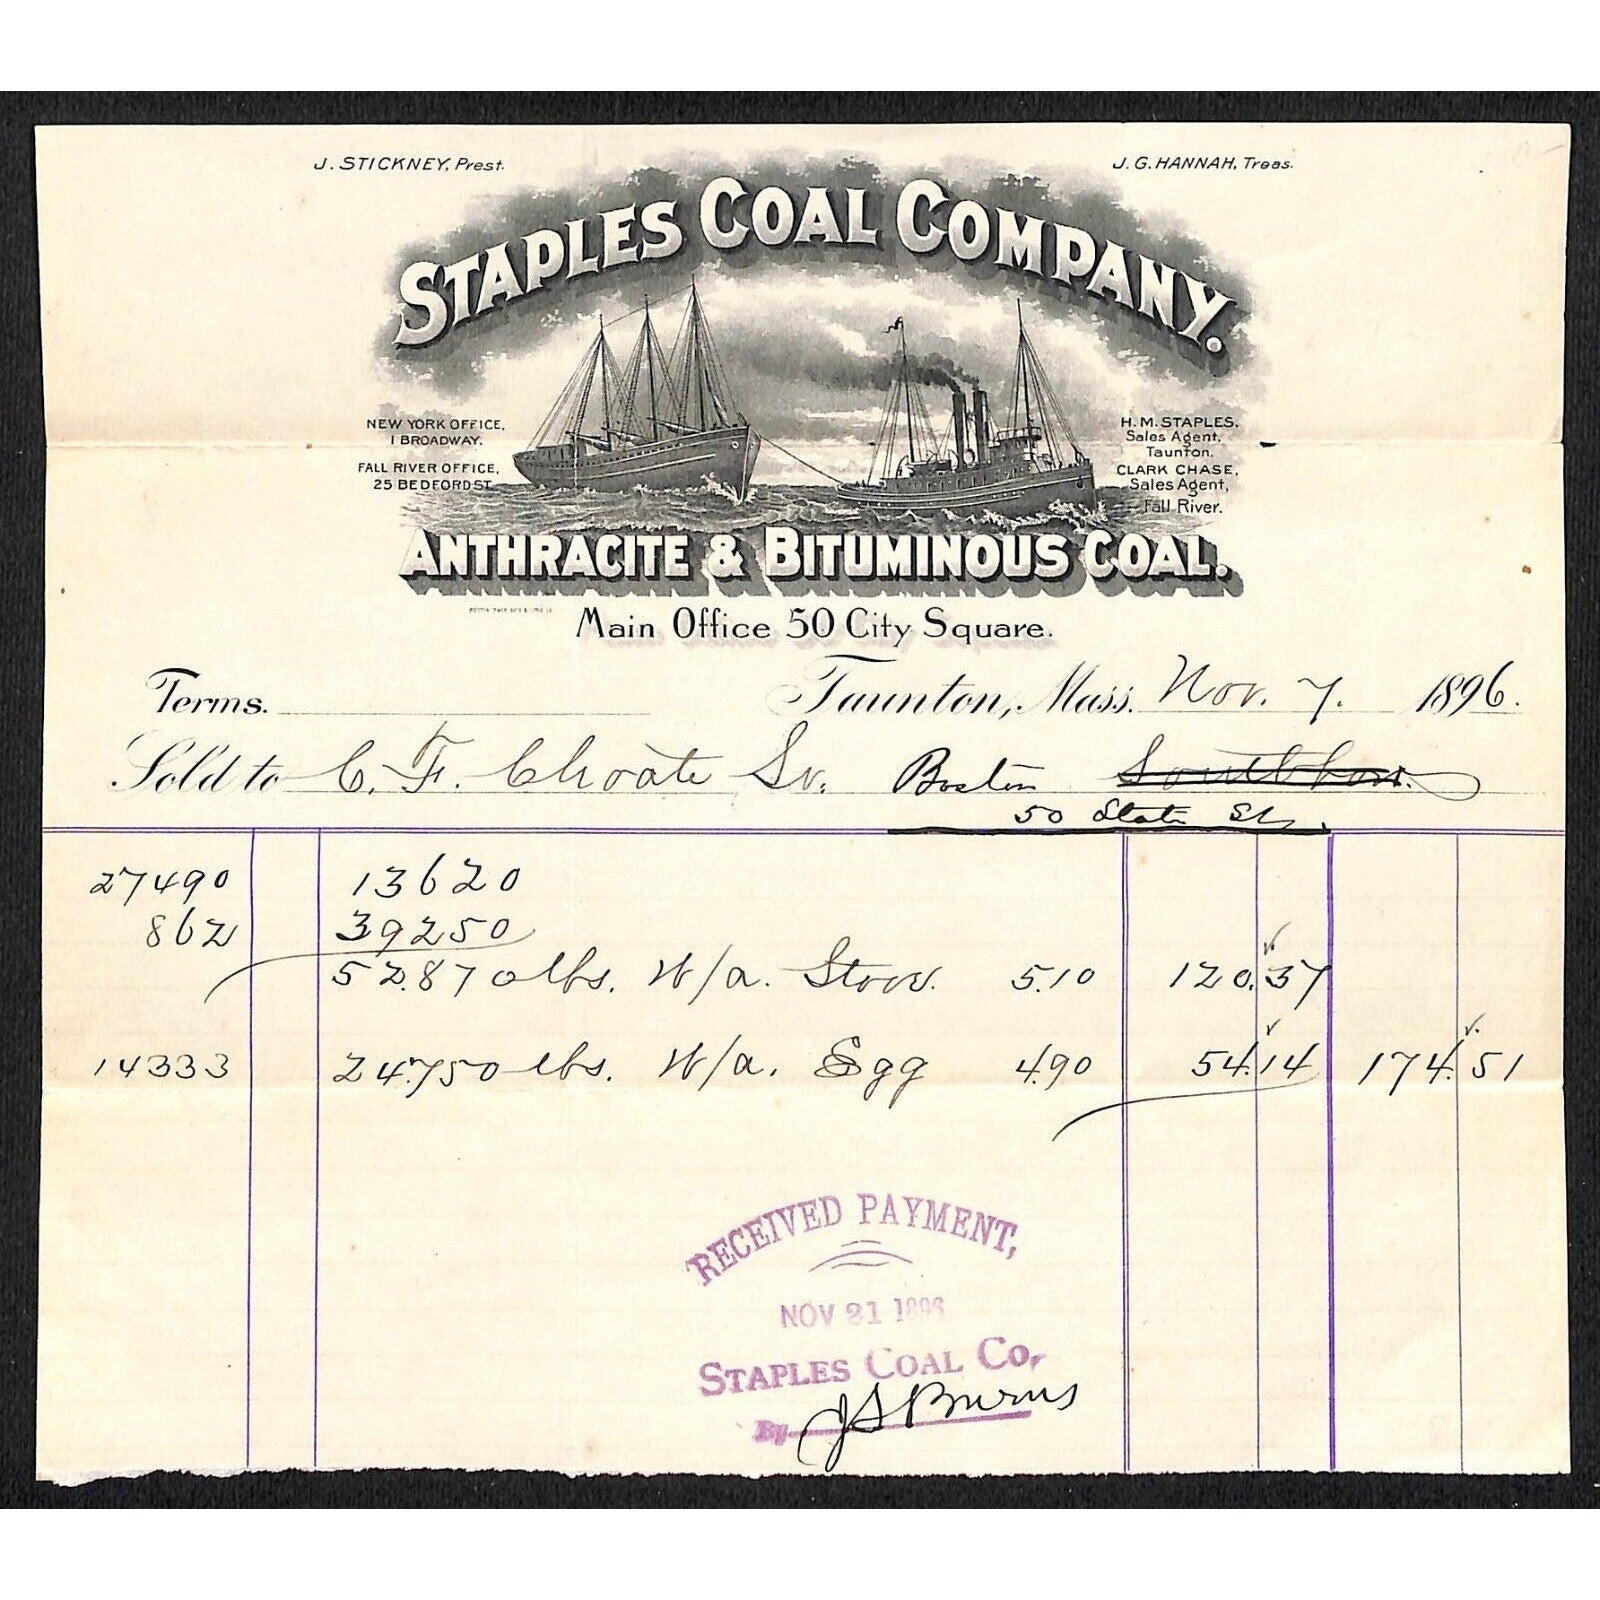 J. STICKNEY, Prest.
J. G. HANNAH, Treas.
STAPLES COAL COMPANY.
NEW YORK OFFICE,
1 BROADWAY.
FALL RIVER OFFICE,
25 BEDFORD ST.
H. M. STAPLES,
Sales Agent,
Taunton.
CLARK CHASE,
Sales Agent,
Fall River.
ANTHRACITE & BITUMINOUS COAL.
Main Office 50 City Square.
Terms.
Taunton, Mass. Nov. 7. 1896.
Sold to C. F. Choate Sr. Boston Southboro.
50 State St.
27490 13620
862 39250
52870 lbs. W/a. Stove. 5.10 120.37
14333 24750 lbs. W/a. Egg 4.90 54.14 174.51
RECEIVED PAYMENT,
NOV 21 1896
STAPLES COAL CO.
By J S Burns